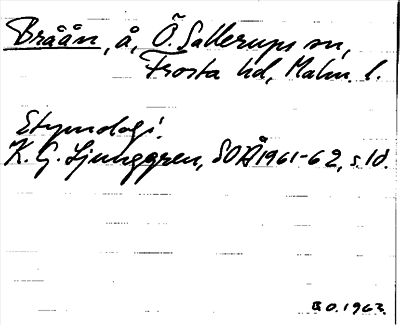 Bråån, å, Ö. Sallerups sn,
Frosta hd, Malm. l.
Etymologi.
K. G. Ljunggren, SOÅ 1961-62, s. 10.
B O. 1963.